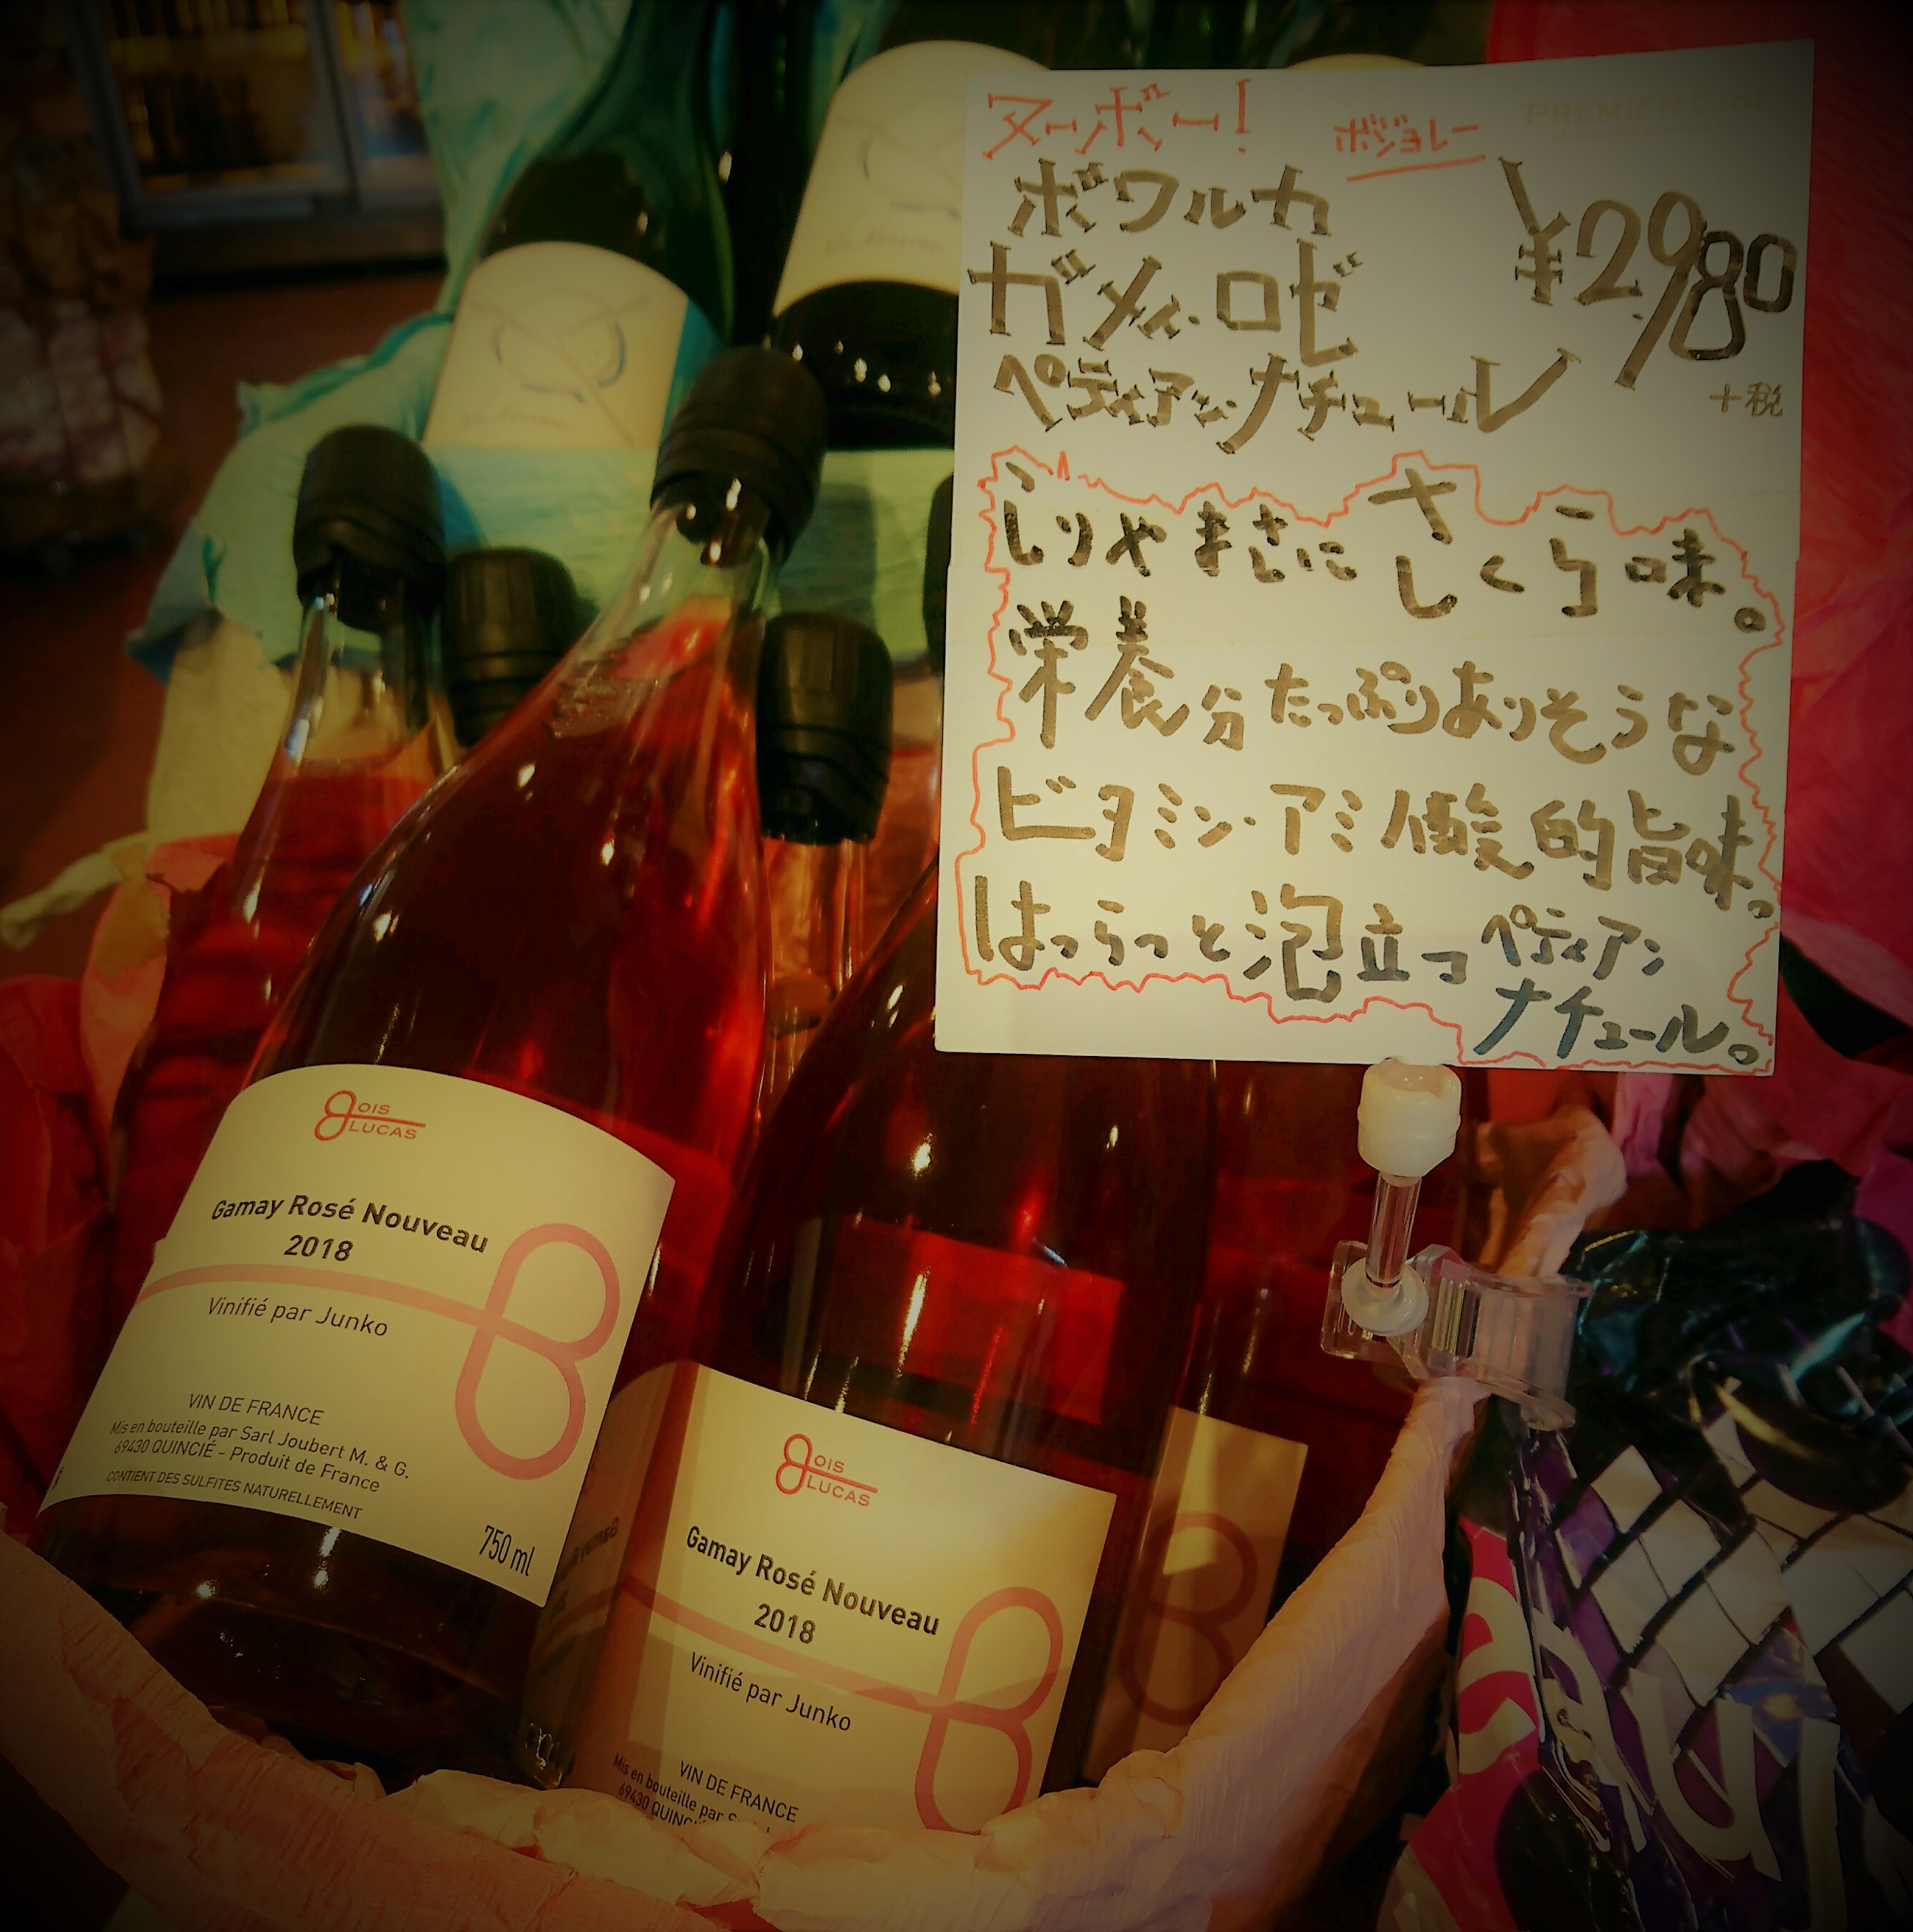 ヌーボー!
ボジョレー
ボワルカ
ガメイ・ロゼ
ペティアン・ナチュール
¥2980
+税
じりやまさにさくら味。
栄養分たっぷりありそうな
ビタミン・アミノ酸的旨味っ
はっらっと泡立つペティアン
ナチュール。
BOIS
LUCAS
Gamay Rosé Nouveau
2018
Vinifié par Junko
VIN DE FRANCE
Mis en bouteille par Sarl Joubert M. & G.
69430 QUINCIÉ - Produit de France
CONTIENT DES SULFITES NATURELLEMENT
750 ml
BOIS
LUCAS
Gamay Rosé Nouveau
2018
Vinifié par Junko
VIN DE FRANCE
Mis en bouteille par
69430